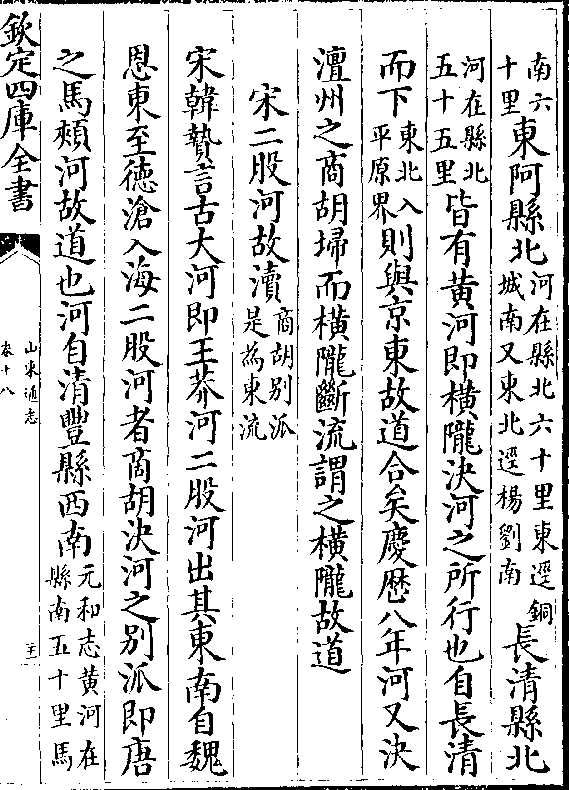 南六十里東阿縣北河在縣北六十里東逕銅城南又東北逕楊劉南長清縣北
河在縣北五十五里皆有黄河即橫隴決河之所行也自長清
而下東北入平原界則與京東故道合矣慶歴八年河又決
澶州之商胡埽而橫隴斷流謂之橫隴故道
宋二股河故瀆商胡别派是為東流
宋韓贄言古大河即王莽河二股河出其東南自魏
恩東至徳滄入海二股河者商胡決河之别派即唐
之馬頰河故道也河自清豐縣西南元和志黄河在縣南五十里馬
欽定四庫全書
山東通志
卷十八